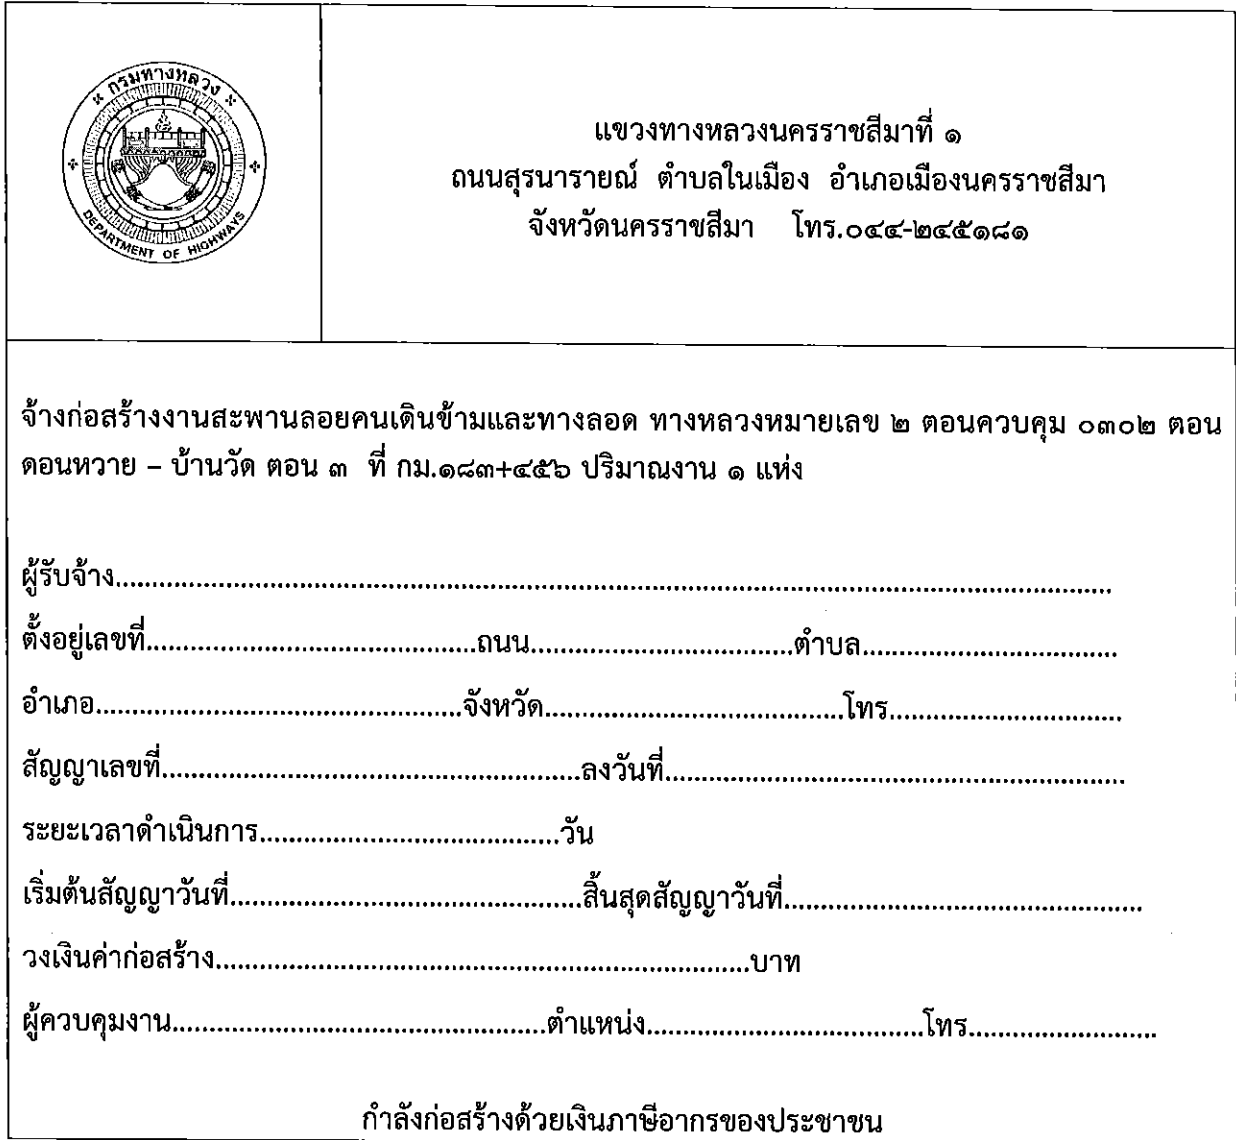 กรมทางหลวง
DEPARTMENT OF HIGHWAYS
แขวงทางหลวงนครราชสีมาที่ ๑
ถนนสุรนารายณ์ ตำบลในเมือง อำเภอเมืองนครราชสีมา
จังหวัดนครราชสีมา โทร.๐๔๔-๒๔๕๑๘๑
จ้างก่อสร้างงานสะพานลอยคนเดินข้ามและทางลอด ทางหลวงหมายเลข ๒ ตอนควบคุม ๐๓๐๒ ตอน
ดอนหวาย – บ้านวัด ตอน ๓ ที่ กม.๑๘๓+๔๕๖ ปริมาณงาน ๑ แห่ง
ผู้รับจ้าง....................................................................................................
ตั้งอยู่เลขที่............................................ถนน...................................ตำบล..................................
อำเภอ.................................................จังหวัด........................................โทร...............................
สัญญาเลขที่........................................................ลงวันที่.............................................................
ระยะเวลาดำเนินการ........................................วัน
เริ่มต้นสัญญาวันที่...............................................สิ้นสุดสัญญาวันที่................................................
วงเงินค่าก่อสร้าง.......................................................................บาท
ผู้ควบคุมงาน..................................................ตำแหน่ง.....................................โทร.........................
กำลังก่อสร้างด้วยเงินภาษีอากรของประชาชน